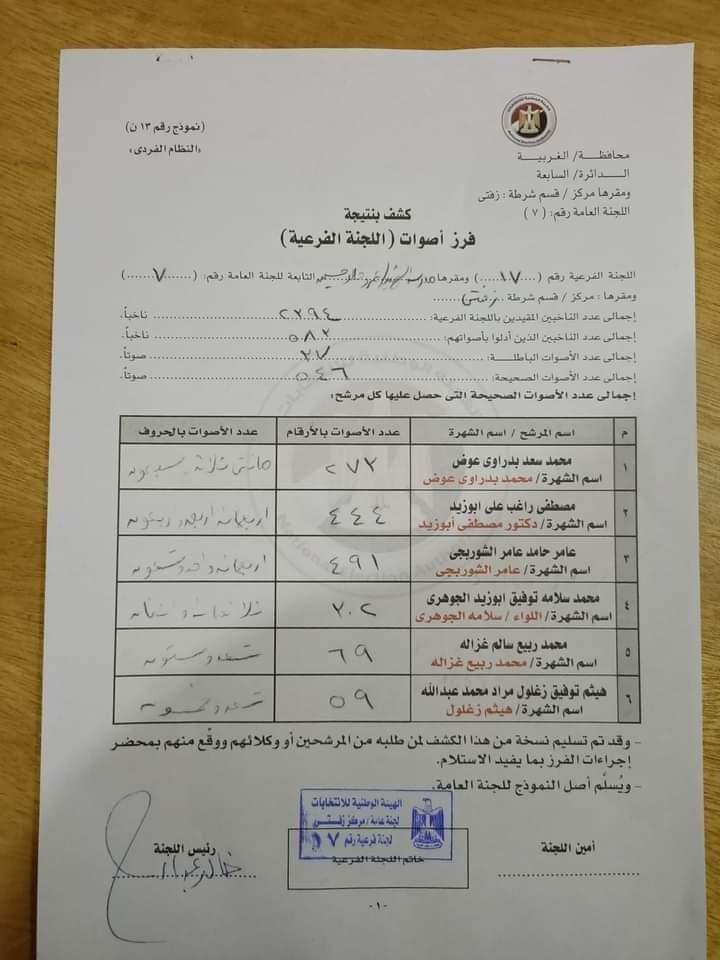 (نموذج رقم ١٣ ن)
«النظام الفردى»
محافظـة/ الغربية
الـدائرة/ السابعة
ومقرها مركز / قسم شرطة : زفتى
اللجنة العامة رقم: ( ٧ )
كشف بنتيجة
فرز أصوات (اللجنة الفرعية)
اللجنة الفرعية رقم (١٧) ومقرها مدرسة التابعة للجنة العامة رقم: (٧)
ومقرها : مركز / قسم شرطة زفتى
إجمالى عدد الناخبين المقيدين باللجنة الفرعية: ٢٣٩٤ ناخباً.
إجمالى عدد الناخبين الذين أدلوا بأصواتهم: ٥٨٣ ناخباً.
إجمالى عدد الأصوات الباطلـــة: ٣٧ صوتاً.
إجمالى عدد الأصوات الصحيحة: ٥٤٦ صوتاً.
إجمالى عدد الأصوات الصحيحة التى حصل عليها كل مرشح:
م اسم المرشح / اسم الشهرة عدد الأصوات بالأرقام عدد الأصوات بالحروف
١ محمد سعد بدراوى عوض ٢٧٣
اسم الشهرة/ محمد بدراوى عوض
٢ مصطفى راغب على ابوزيد ٤٤٤ اربعمائة اربعة واربعون
اسم الشهرة/ دكتور مصطفى أبوزيد
٣ عامر حامد عامر الشوربجى ٤٩١ اربعمائة واحد وتسعون
اسم الشهرة/ عامر الشوربجى
٤ محمد سلامه توفيق ابوزيد الجوهرى ٣٠٢ ثلاثمائة واثنان
اسم الشهرة/ اللواء / سلامه الجوهرى
٥ محمد ربيع سالم غزاله ٦٩ تسعة وستون
اسم الشهرة/ محمد ربيع غزاله
٦ هيثم توفيق زغلول مراد محمد عبدالله ٥٩ تسعة وخمسون
اسم الشهرة/ هيثم زغلول
- وقد تم تسليم نسخة من هذا الكشف لمن طلبه من المرشحين أو وكلائهم ووقّع منهم بمحضر
إجراءات الفرز بما يفيد الاستلام.
- ويُسلَّم أصل النموذج للجنة العامة.
الهيئة الوطنية للانتخابات
لجنة عامة / مركز زفتى
لجنة فرعية رقم ١٧
أمين اللجنة
خاتم اللجنة الفرعية
رئيس اللجنة
-١-